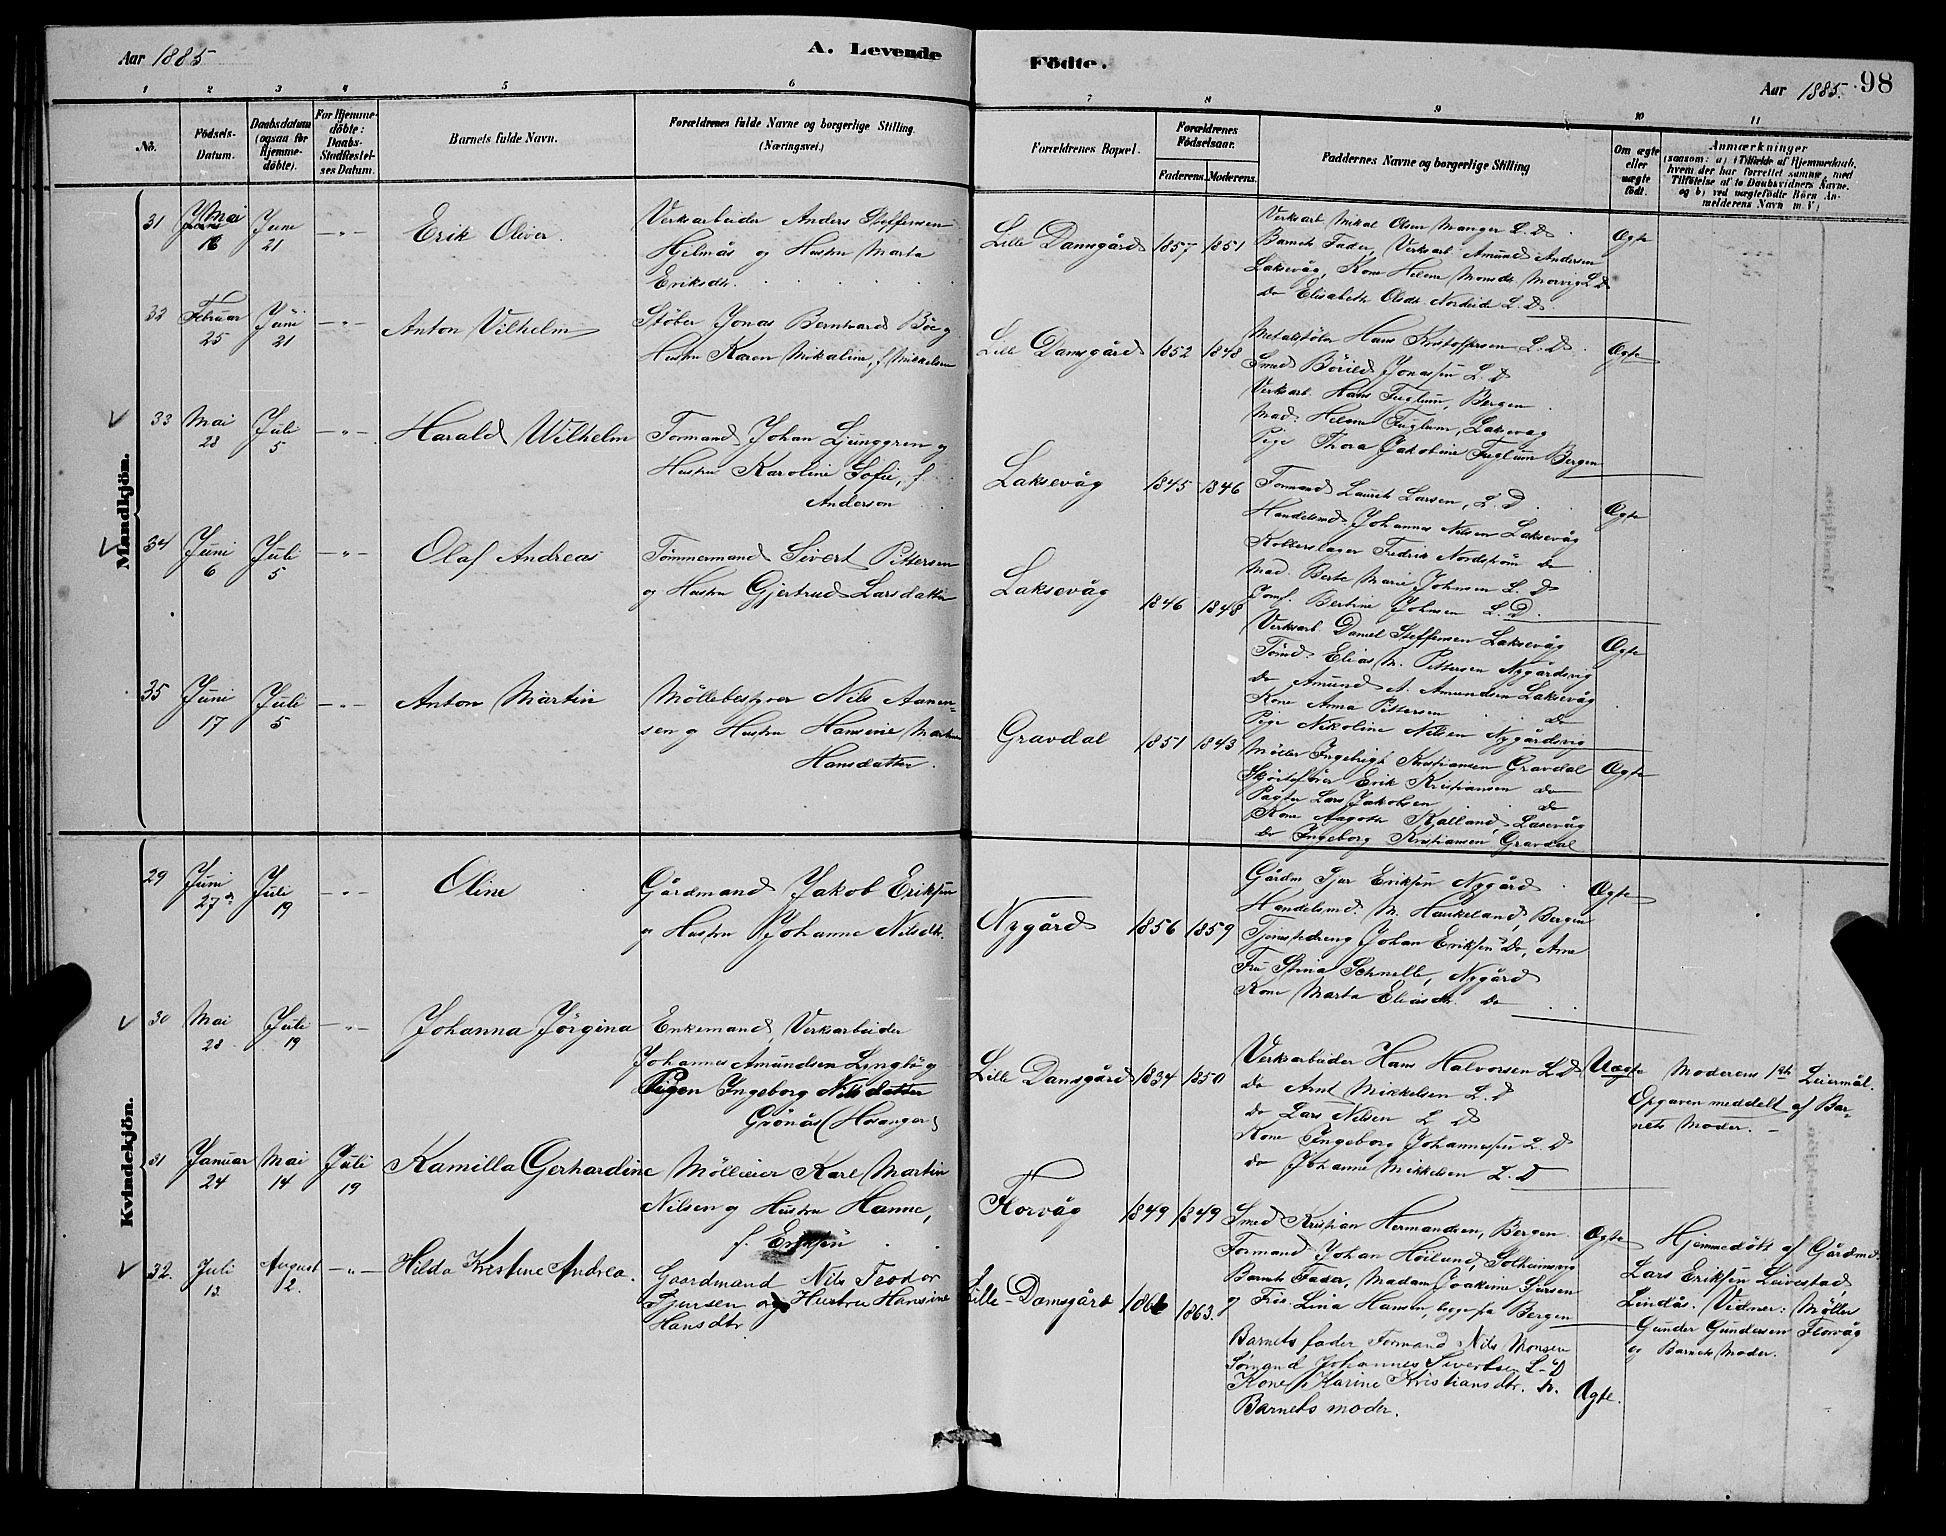 Aar 1885
A. Levende
Födte.
Aar 1885.
98
1 2 3 4 5 6 7 8 9 10 11
No.
Födsels-
Datum.
Daabsdatum
(ogsaa for
Hjemme-
döbte).
For Hjemme-
döbte:
Daabs-
Stadfæstel-
ses Datum.
Barnets fulde Navn.
Forældrenes fulde Navne og borgerlige Stilling.
(Næringsvei.)
Forældrenes Bopæl.
Forældrenes
Födselsaar.
Faderens. Moderens.
Faddernes Navne og borgerlige Stilling
Om ægte
eller
uægte
födt.
Anmærkninger
(saasom: a) i Tilfælde af Hjemmedaab,
hvem der har forrettet samme, med
Tilföielse af to Daabsvidners Navne,
og b) ved uægtefödte Börn An-
melderens Navn m. V.)
Mandkjön.
31
Mai
16
Juni
21
-"-
Erik Oliver.
Verksarbeider Anders Steffensen
Hjelmås og Hustru Marta
Eriksdtr.
Lille Damsgård
1857 1851
Verksarb. Mikal Olsen Manger L. D.
Barnets Fader, Verksarb. Amund Andersen
Laksevåg, Kone Helene Monsdtr. L D
Do Elisabeth Olsdtr. L. D.
Ægte
32
Februar
25
Juni
21
-"-
Anton Vilhelm
Støber Jonas Bernhard Böe og
Hustru Karen Mikaline, f. Mikkelsen
Lille Damsgård
1852 1848
Metalstöber Hans Kristoffersen L. D.
Smed Jonassen L. D
Verksarb. Hans Fuglum, Bergen
Mad. Helene Fuglum, Laksevåg
Pige Thora Jakobine Fuglum Bergen
Ægte
33
Mai
28
Juli
5
-"-
Harald Wilhelm
Formand Johan Ljunggren og
Hustru Karoline Sofie, f.
Anderson
Laksevåg
1845 1846
Formand Laurits Larsen, L. D.
Handelsmd. Johannes Nilsen Laksevåg
Kobberslager Fredrik Nordström do
Mad. Berte Marie Johnsen L. D
Jomf. Bertine Johnsen L. D.
Ægte
34
Juni
6
Juli
5
-"-
Olaf Andreas
Tømmermand Sivert Pettersen
og Hustru Gjertrud Larsdatter
Laksevåg
1846 1848
Verksarb. Daniel Steffensen Laksevåg
Tömd. Elias M. Pettersen Nygårdsvig
do Amund A. Amundsen Laksevåg
Kone Anna Pettersen do
Pige Nikoline Nilsen Nygårdsvig
Ægte
35
Juni
17
Juli
5
-"-
Anton Martin
Møllebestyrer Nils Aanen-
sen og Hustru Hansine
Hansdatter.
Gravdal
1851 1843
Møller Ingebrigt Kristiansen Gravdal
Erik Kristiansen do
Pagter Lars Jakobsen do
Kone Aagothe Kalland, Lasevåg
do Ingeborg Kristiansen Gravdal
Ægte
Kvindekjön.
29
Juni
27
Juli
19
-"-
Oline
Gårdmand Jakob Eriksen
og Hustru Johanne Nilsdtr.
Nygård
1856 1859
Gårdm. Sjur Eriksen Nygård
Handelsmd. M. Haukeland, Bergen
Tjenestedreng Johan Eriksen Do, Arne
Frk Stina Schnelle, Nygård
Kone Marta Eliasdtr. do
Ægte
30
Mai
28
Juli
19
-"-
Johanna Jörgina
Enkemand, Verksarbeider
Johannes Amundsen Lyngbö og
Pigen Ingeborg Nilsdatter
Grönås (Hosanger)
Lille Damsgård
1834 1850
Verksarbeider Hans Halvorsen L D
do Arnt Mikkelsen L. D
do Lars Nilsen L D
Kone Ingeborg Johannessen L. D
do Johanne Mikkelsen L. D
Uægte
Moderens 1ste Leiermål.
Opgaven meddelt af Bar-
nets Moder. -
31
Januar
24
Mai
14
Juli
19
Kamilla Gerhardine
Mölleeier Karl Martin
Nilsen og Hustru Hanne,
f. Eriksen
Florvåg
1849 1849
Smed Kristian Hermandsen, Bergen
Formand Johan Höilund, Solheimsvig
Barnets Fader, Madam Joakime Larsen
og Frk. Lina Hansen, begge fra Bergen
Ægte
Hjemmedöbt af Gårdmd.
Lars Eriksen Leivestad,
Lindås. Vidner: Møller
Gunder Gundersen Florvåg
og Barnets Moder.
32.
Juli
13.
August
2.
-"-
Hilda Kristine Andrea.
Gaardmand Nils Teodor
Sjursen og Hustru Hansine
Hansdtr.
Lille-Damsgård
1861 1863.
Barnets fader Formand Nils Monsen
Sömand Johannes Sivertsen L-D
Kone Karine Kristiansdtr. do.
Barnets moder.
Ægte.